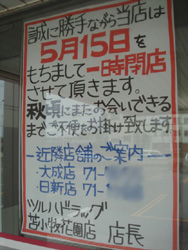 誠に勝手ながら当店は
5月15日を
もちまして一時閉店
させて頂きます。
秋頃にまたお会いできる
までご不便お掛け致します
近隣店舗のご案内
・大成店 71-
・日新店 71-
ツルハドラッグ
苫小牧花園店 店長